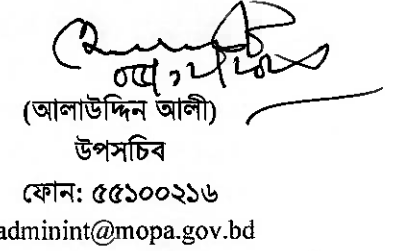 (আলাউদ্দিন আলী)
উপসচিব
ফোন: ৫৫১০০২১৬
adminint@mopa.gov.bd